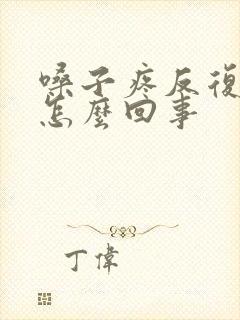 嗓子疼反復
怎麼回事
丁偉